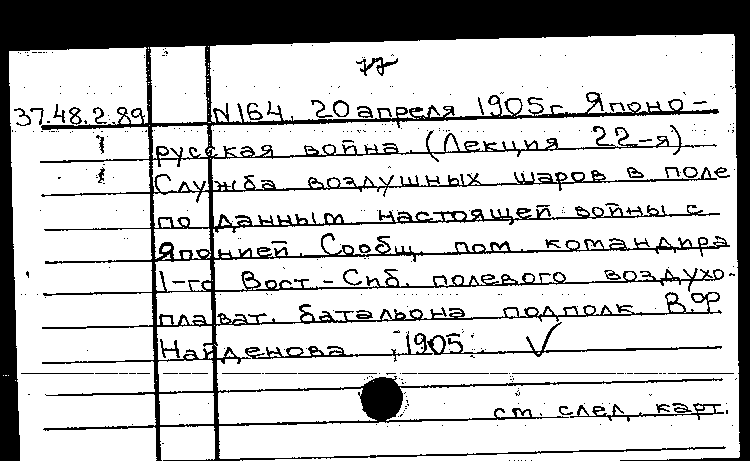 77
37.48.2.89 N164. 20 апреля 1905г. Японо-
русская война. (Лекция 22-я)
Служба воздушных шаров в поле
по данным настоящей войны с
Японией. Сообщ. пом. командира
1-го Вост-Сиб. полевого воздухо-
плават. батальона подполк. В.Ф.
Найденова, 1905. √
ст. след. карт.